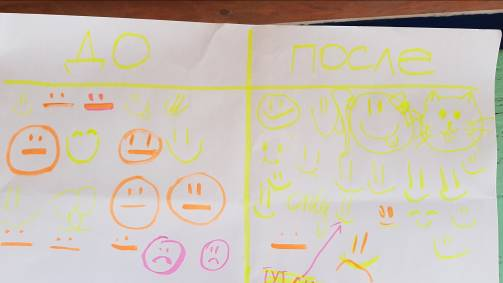 ДО
ПОСЛЕ
ТУТ